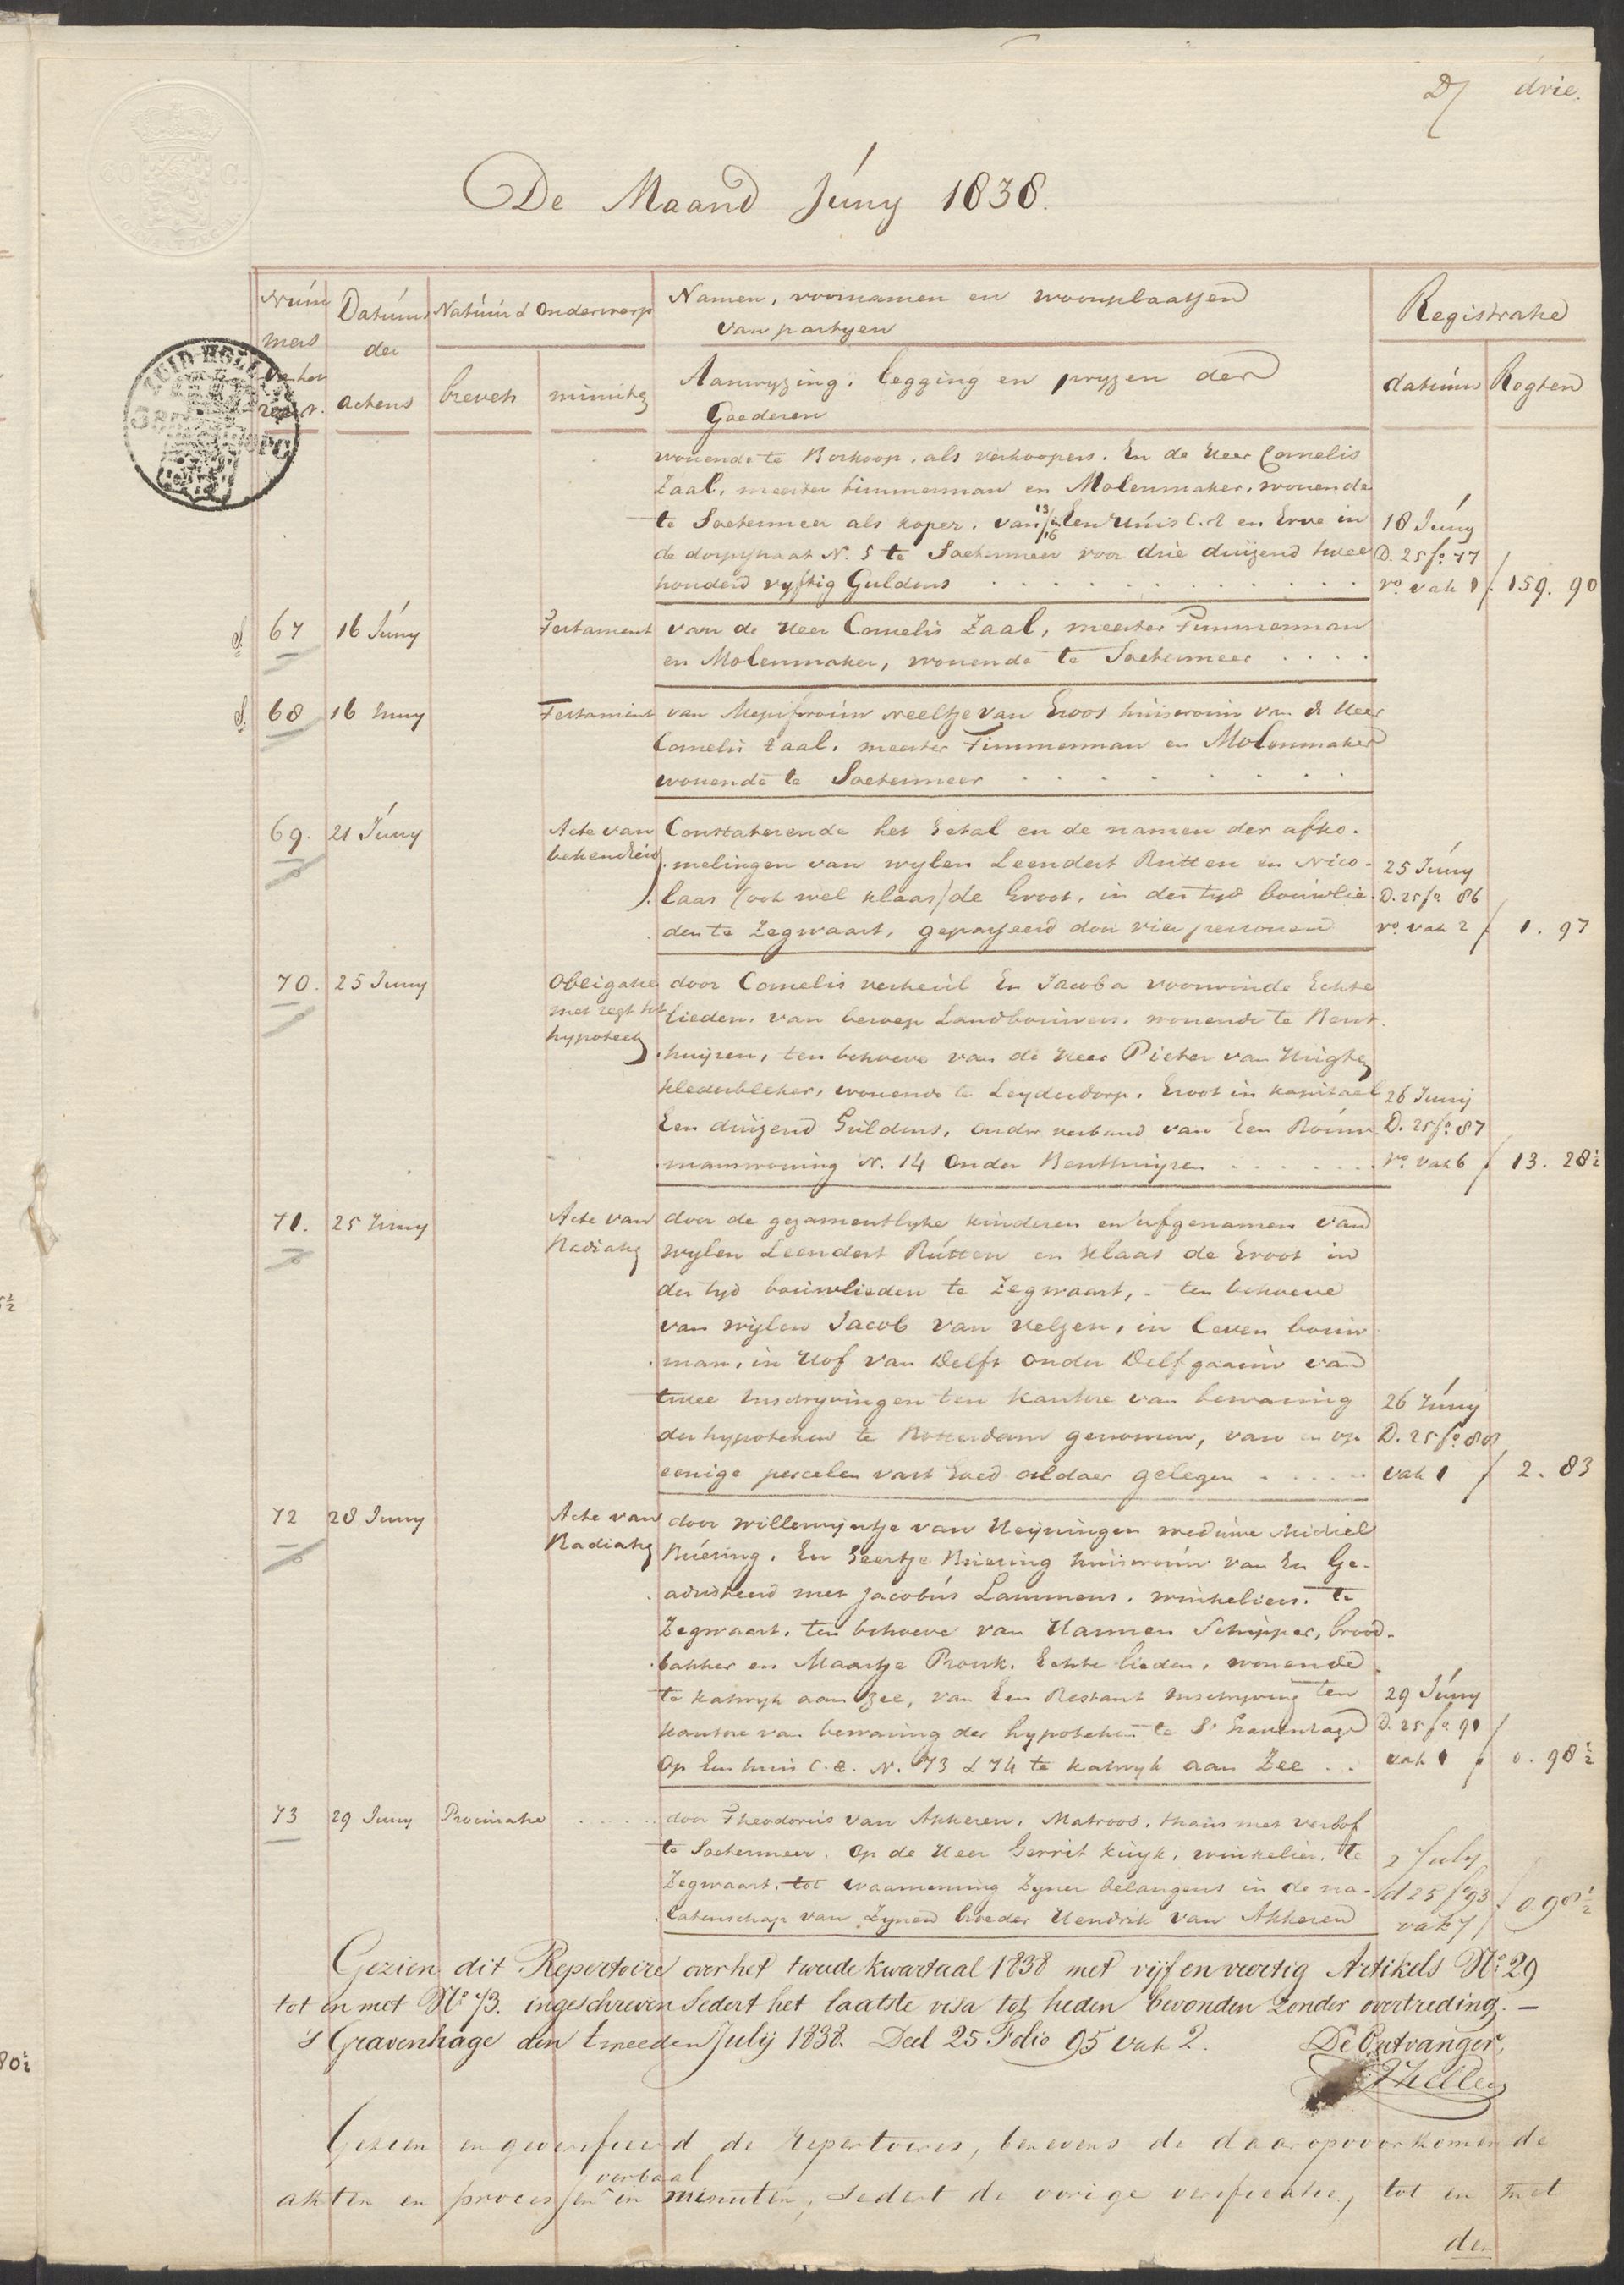 drie.
De Maand Júny 1838.
Núm
mers
van het
Datúms
der
actens
Natúúr & Onderwerp
brevets
minúten
Namen, voornamen en woonplaatsen
van partyen
Aanwyzing, legging en pryzen der
Goederen
Registratie
datúms
Regten
ZUID HOLL
wonende te Boskoop, als verkoopers. En de Heer Cornelis
Zaal, meester timmerman en Molenmaker, wonende
te Soetermeer als koper, van 13/16 in Een Húis C.A. en Erve in
de dorpsstraat N. 5 te Soetermeer voor drie duizend twee
honderd vyftig Guldens . . . . . . . . . .
18 Júny
D. 25 fo. 77
vo. vak 1 f. 159. 90
67 16 Júny Testament van de Heer Cornelis Zaal, meester Timmerman
en Molenmaker, wonende te Soetermeer . . . .
68 16 Juny Testament van Mejufvrouw Neeltje van Groos huisvrouw van de Heer
Cornelis Zaal, meester Timmerman en Molenmaker
wonende te Soetermeer . . . . . . . .
69. 21 Júny Acte van bekendheid
Constaterende het Getal en de namen der afko-
melingen van wylen Leendert Rutten en Nico-
laas (ook wel Klaas) de Groot, in der tyd bouwlie-
den te Zegwaart, gepasseerd door vier personen
25 Júny
D. 25 fo. 86
vo. vak 2 f 1. 97
70. 25 Juny Obligatie met regt tot hypoteek
door Cornelis verheúl En Jacoba voorwinde Echte
lieden, van beroep Landbouwers, wonende te Bent-
huizen, ten behoeve van de Heer Pieter van
klederbleker, wonende te Leyderdorp, Groot in kapitaal
Een duizend Guldens, onder verband van Een Boúw-
manswoning N. 14 Onder Benthuizen . . . . . .
26 Junij
D. 25 fo. 87
vo. vak 6 f 13. 28½
71. 25 Juny Acte van Radiatie
door de gezamentlyke kinderen en afgenamen van
wylen Leendert Rútten en Klaas de Groot in
der tyd bouwlieden te Zegwaart, - ten behoeve
van wylen Jacob van Velzen, in leven bouw-
man, in Hof van Delft onder Delfgaauw van
twee Inschryvingen ten kantore van bewaring
der hypoteken te Rotterdam genomen, van en op
eenige percelen vast Goed aldaar gelegen . . . . .
26 Júny
D. 25 fo. 88
vak 1 f 2. 83
72 28 Juny Acte van Radiatie
door Willemyntje van Heijningen weduwe Michiel
Búesing, En Geertje Buesing huisvrouw van En Ge-
adsisteerd met Jacobús Lammens, winkeliers, te
Zegwaart, ten behoeve van Harmen Schipper, brood-
bakker en Maartje Pronk, Echte lieden, wonende
te Katwyk aan Zee, van Een Restant Inschryving ten
kantore van bewaring der hypoteken te S' Gravenhage
Op Een huis C.A. N. 73 & 74 te Katwyk aan Zee . .
29 Júny
D. 25 fo. 91
vak 1 f 0. 98½
73 29 Juny Procuratie . . . .
door Theodorus van Akkeren, Matroos, thans met verlof
te Soetermeer, Op de Heer Gerrit Kuyk, winkelier, te
Zegwaart, tot waarneming Zyner belangens in de na-
latenschap van Zynen broeder Hendrik van Akkeren
2 July
d 25 fo 93
vak 7 f 0.98½
Gezien dit Repertoire over het tweede kwartaal 1838 met vijf en veertig Artikels No. 29
tot en met No. 73. ingeschreven sedert het laatste visa tot heden bevonden zonder overtreding. —
's Gravenhage den tweeden Julij 1838. Deel 25 Folio 95 vak 2.
De Ontvanger,
Gezien en geverifieerd de Repertoires, benevens de daarop voorkomende
akten en processen verbaal in minuten, sedert de vorige verificatie, tot en met
den
5½
80½